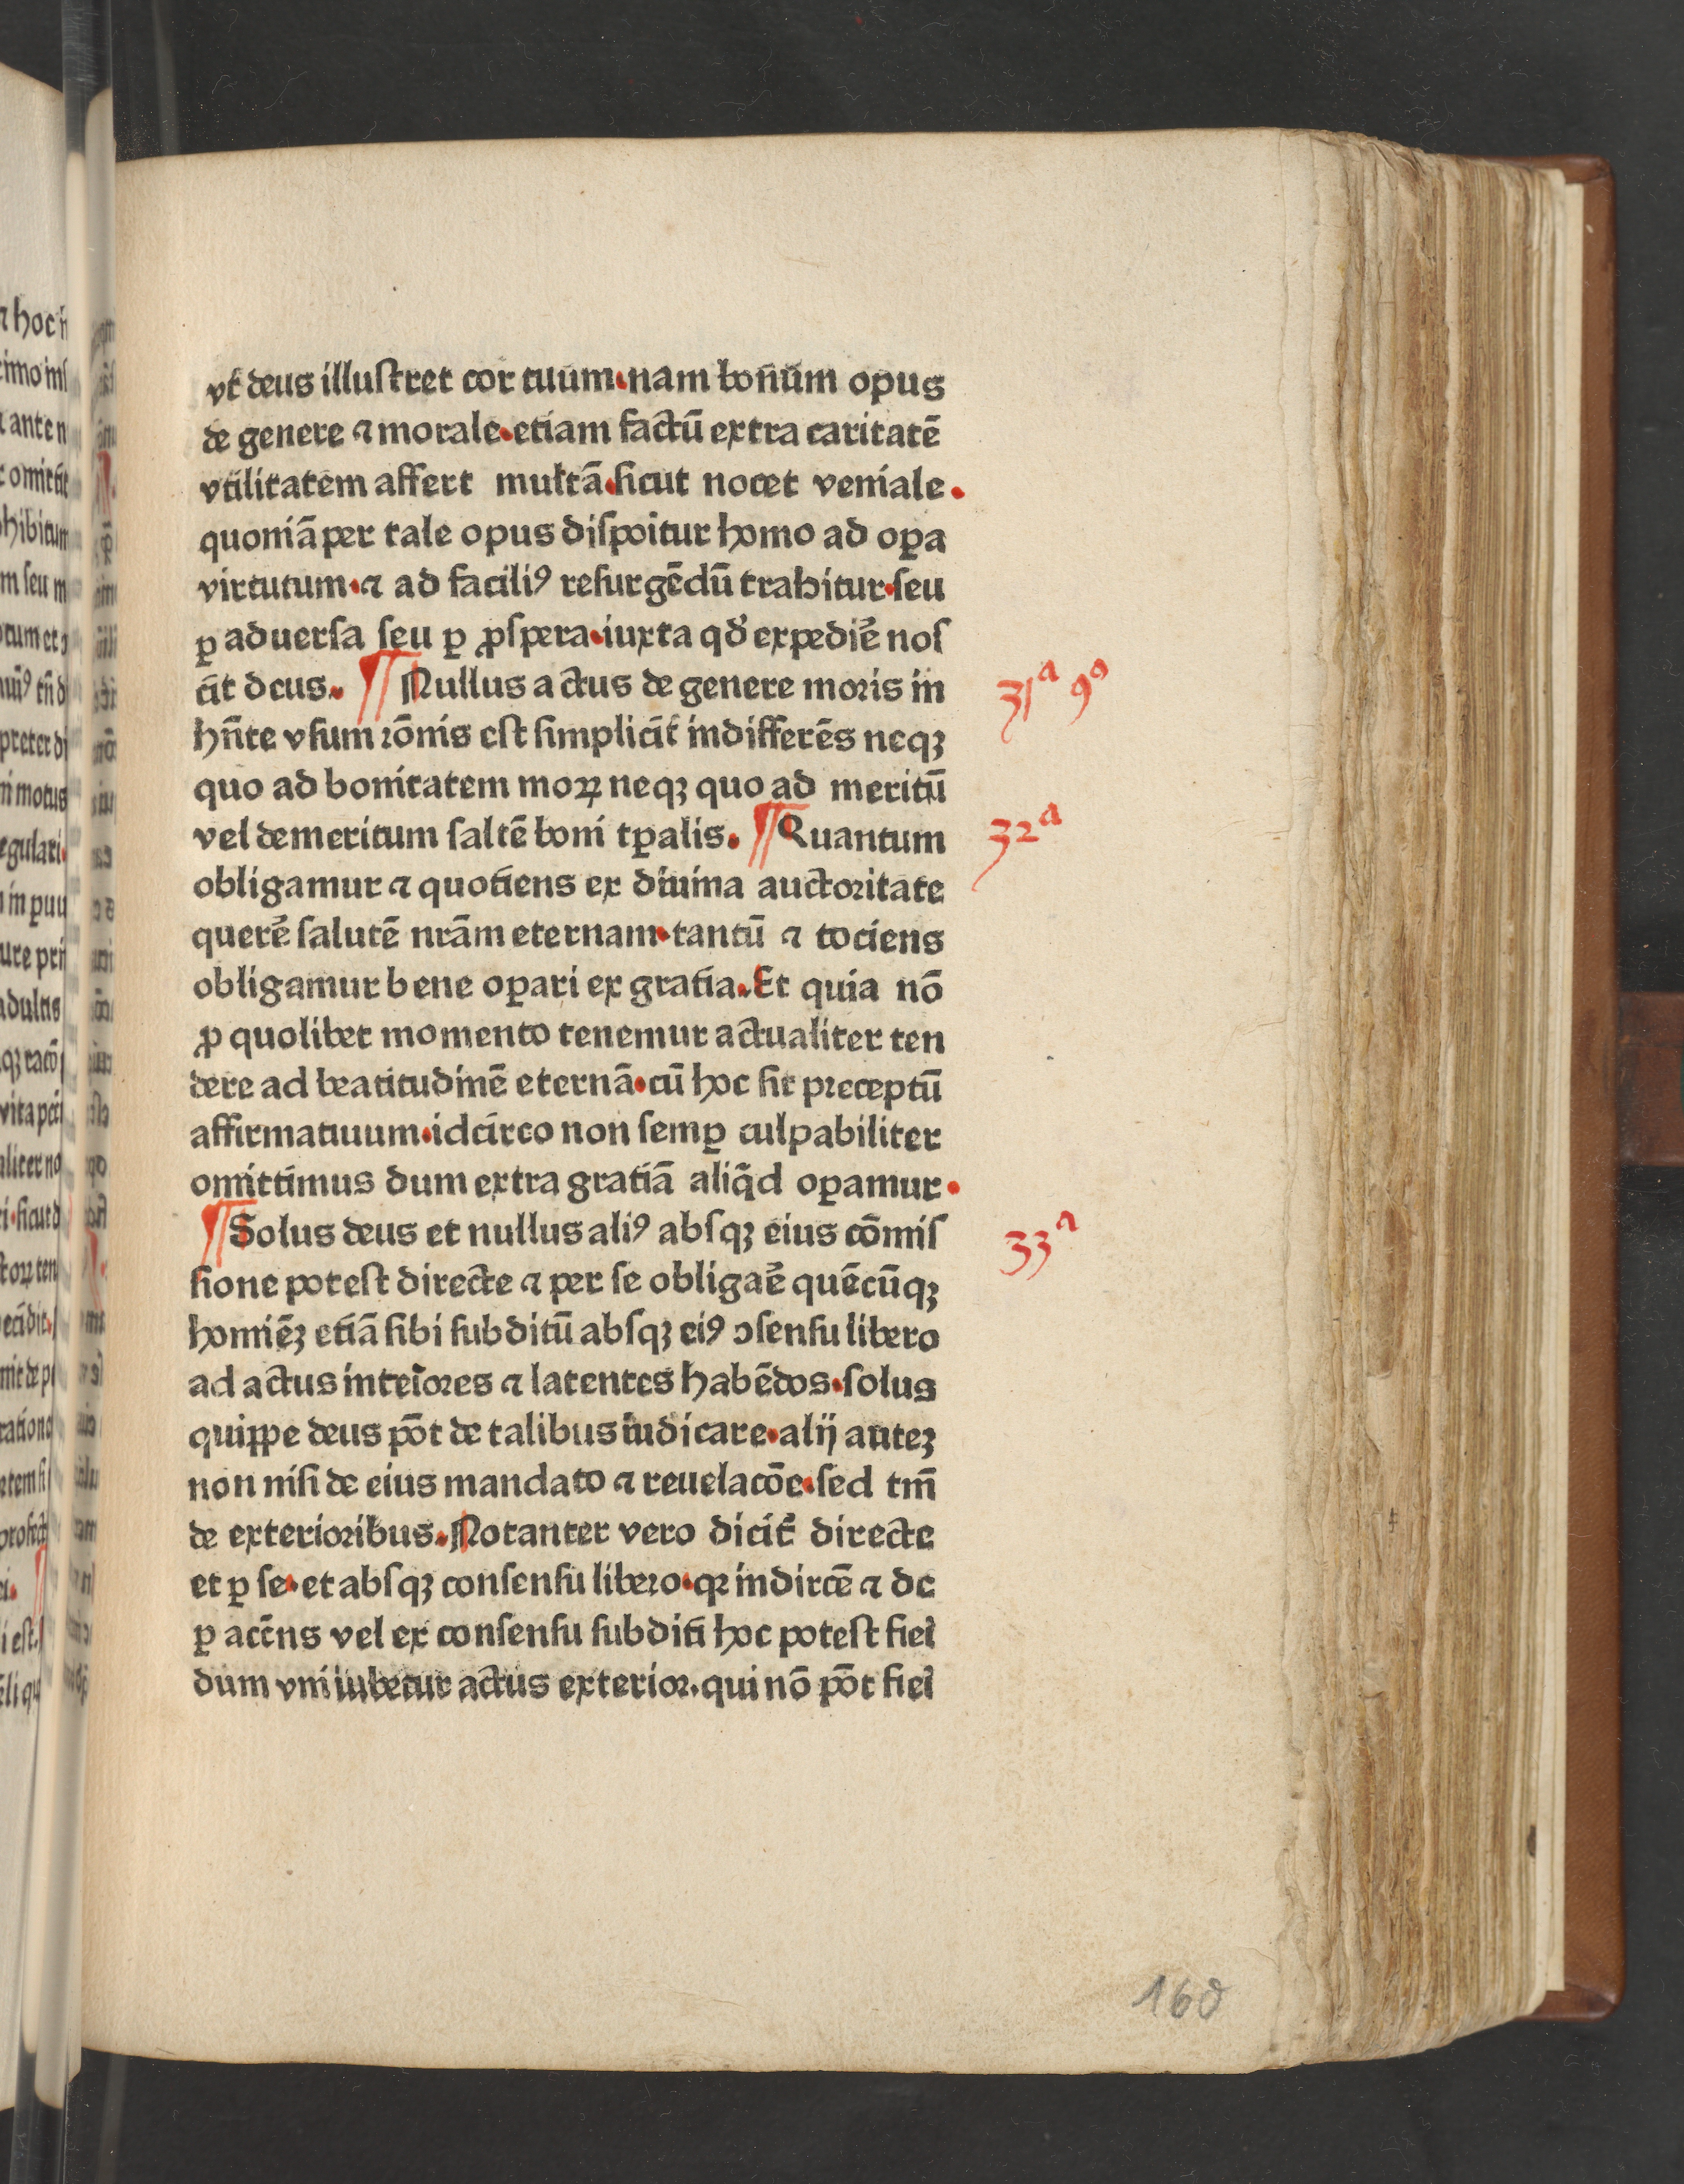 vt̄ deus illuſtret cor tuum.nam bonūm opus
de genere ⁊ morale.etiam factū extra caritatē
vtilitatem affert multā.ſicut nocet veniale.
quoniā per tale opus diſpoitur homo ad oꝑa
virtutum.⁊ ad faciliꝰ reſurgēdū trahitur.ſeu
ꝑ aduerſa ſeu ꝑ ꝓſpera.iuxta qď expediē noſ
cit̄ deus. ¶ Nullus actus de genere moris in
hn̄te vſum rōnis eſt ſimplicit̄ indifferēs neqꝫ
quo ad bonitatem moꝝ neqꝫ quo ad meritū
vel demeritum ſaltē boni tꝑalis. ¶ Quantum
obligamur ⁊ quotiens ex diuina auctoritate
querē ſalutē nrām eternam.tantū ⁊ tociens
obligamur bene oꝑari ex gratia.Et quia nō
ꝓ quolibet momento tenemur actualiter ten
dere ad beatitudinē eternā.cū hoc ſit preceptū
affirmatiuum.idcirco non ſemꝑ culpabiliter
omittimus dum extra gratiā aliq̄d oꝑamur.
¶ Solus deus et nullus aliꝰ abſqꝫ eius cōmiſ
ſione poteſt directe ⁊ per ſe obligaē quēcūqꝫ
homiēꝫ etiā ſibi ſubditū abſqꝫ eiꝰ ↄſenſu libero
ad actus inteiores ⁊ latentes habēdos.ſolus
quippe deus pōt de talibus iudicare.alij auteꝫ
non niſi de eius mandato ⁊ reuelacōe.ſed tm̄
de exterioribus.Notanter vero dicit̄ directe
et ꝑ ſe.et abſqꝫ conſenſu libero.qꝛ indirctē ⁊ de
ꝑ acc̄ns vel ex conſenſu ſubditi hoc poteſt fiei
dum vni iubetur actus exterior.qui nō pōt fiei
31ᵃ 9ᵒ
32ᵃ
33ᵃ
160